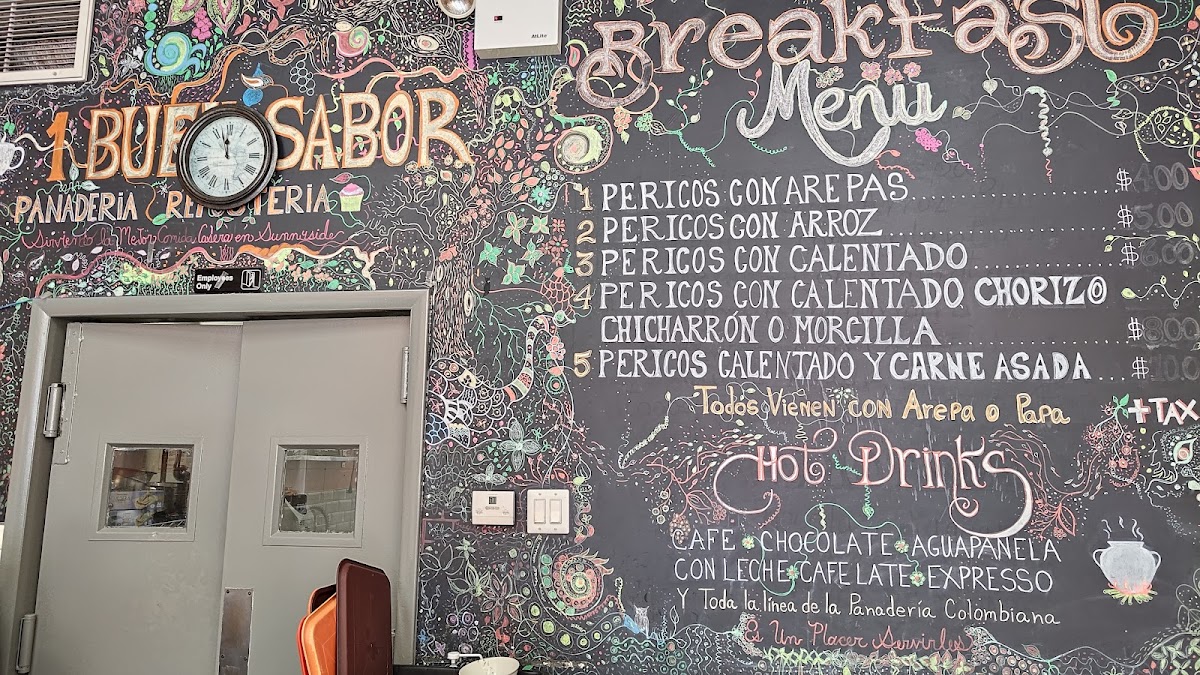 AtLite
1 BUEN SABOR
PANADERIA REPOSTERIA
Sirviendo la Mejor Comida Casera en Sunnyside
Employees
Only
Breakfast
Menu
1 PERICOS CON AREPAS $400
2 PERICOS CON ARROZ $500
3 PERICOS CON CALENTADO $600
4 PERICOS CON CALENTADO CHORIZO
CHICHARRÓN O MORCILLA $800
5 PERICOS CALENTADO Y CARNE ASADA $
Todos Vienen con Arepa o Papa
+TAX
Hot Drinks
CAFE CHOCOLATE AGUAPANELA
CON LECHE CAFE LATE EXPRESSO
Y Toda la línea de la Panadería Colombiana
Es Un Placer Servirles